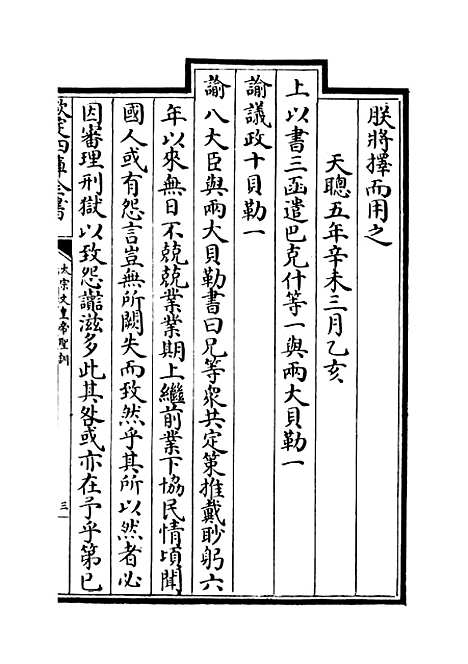 朕將擇而用之
天聰五年辛未三月乙亥
上以書三函遣巴克什等一與兩大貝勒一
諭議政十貝勒一
諭八大臣與兩大貝勒書曰兄等衆共定策推戴眇躬六
年以來無日不兢兢業業期上繼前業下協民情頃聞
國人或有怨言豈無所闕失而致然乎其所以然者必
因審理刑獄以致怨讟滋多此其咎或亦在予乎第已
欽定四庫全書
太宗文皇帝聖訓
三